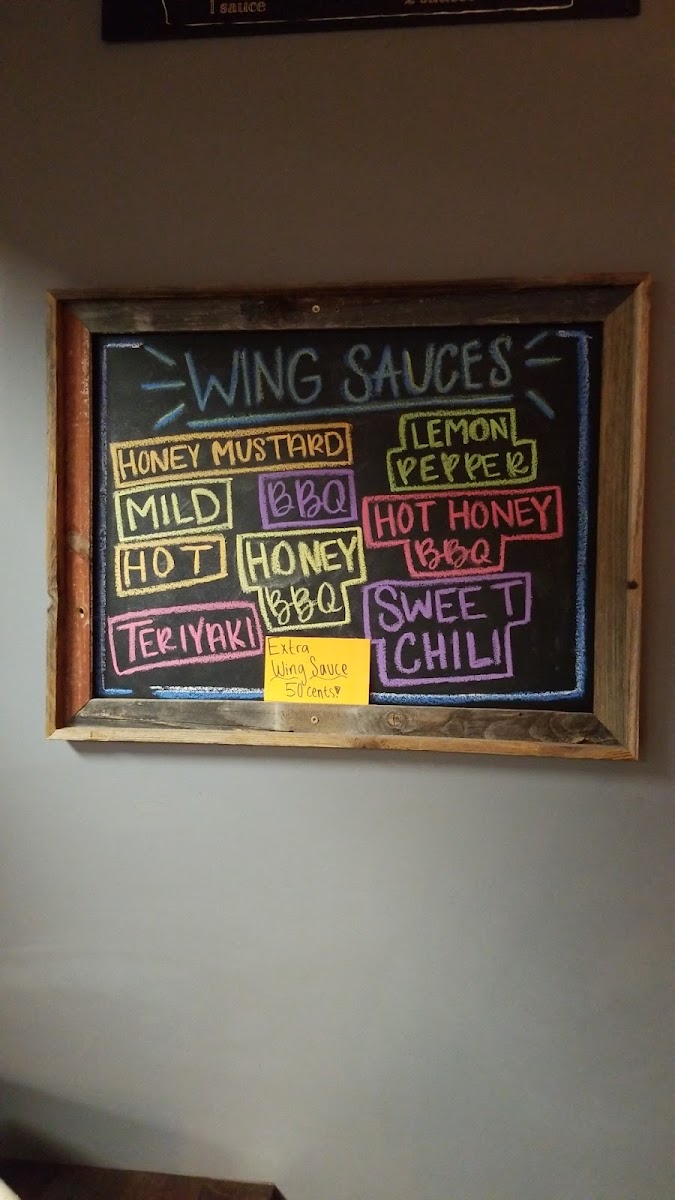 1 sauce
WING SAUCES
HONEY MUSTARD
MILD
HOT
TERIYAKI
BBQ
HONEY
BBQ
LEMON
PEPPER
HOT HONEY
BBQ
SWEET
CHILI
Extra
Wing Sauce
50 cents♥